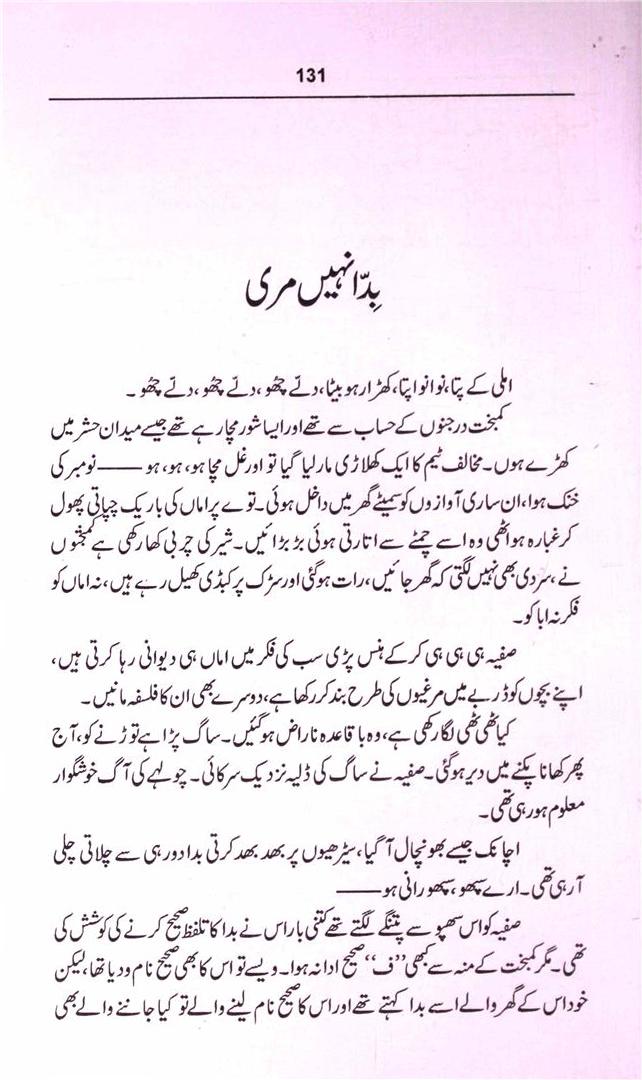 131
بِدّا نہیں مری
املی کے پتا، نوا نوا پتا، کھڑا رہو بیٹا، دئے چھُو، دئے چھُو، دئے چھُو ۔
کمبخت درجنوں کے حساب سے تھے اور ایسا شور مچا رہے تھے جیسے میدان حشر میں
کھڑے ہوں۔ مخالف ٹیم کا ایک کھلاڑی مار لیا گیا تو اور غل مچا ہو، ہو، ہو —— نومبر کی
خنک ہوا، ان ساری آوازوں کو سمیٹے گھر میں داخل ہوئی۔ توے پر اماں کی باریک چپاتی پھول
کر غبارہ ہو اٹھی وہ اسے چمٹے سے اتارتی ہوئی بڑبڑائیں۔ شیر کی چربی کھا رکھی ہے کمبختوں
نے، سردی بھی نہیں لگتی کہ گھر جائیں، رات ہوگئی اور سڑک پر کبڈی کھیل رہے ہیں، نہ اماں کو
فکر نہ ابا کو۔
صفیہ ہی ہی ہی کر کے ہنس پڑی سب کی فکر میں اماں ہی دیوانی رہا کرتی ہیں،
اپنے بچوں کو ڈربے میں مرغیوں کی طرح بند کر رکھا ہے، دوسرے بھی ان کا فلسفہ مانیں۔
کیا ٹھی ٹھی لگا رکھی ہے، وہ باقاعدہ ناراض ہوگئیں۔ ساگ پڑا ہے توڑنے کو، آج
پھر کھانا پکنے میں دیر ہوگئی۔ صفیہ نے ساگ کی ڈلیہ نزدیک سرکائی۔ چولہے کی آگ خوشگوار
معلوم ہو رہی تھی۔
اچانک جیسے بھونچال آ گیا، سیڑھیوں پر بھد بھد کرتی بدا دور ہی سے چلاتی چلی
آ رہی تھی۔ ارے سپھو، سپھو رانی ہو ——
صفیہ کو اس سپھو سے پتنگے لگتے تھے کتنی بار اس نے بدا کا تلفظ صحیح کرنے کی کوشش کی
تھی۔ مگر کمبخت کے منہ سے کبھی ”ف“ صحیح ادا نہ ہوا۔ ویسے تو اس کا بھی صحیح نام ودیا تھا، لیکن
خود اس کے گھر والے اسے بدا کہتے تھے اور اس کا صحیح نام لینے والے تو کیا جاننے والے بھی